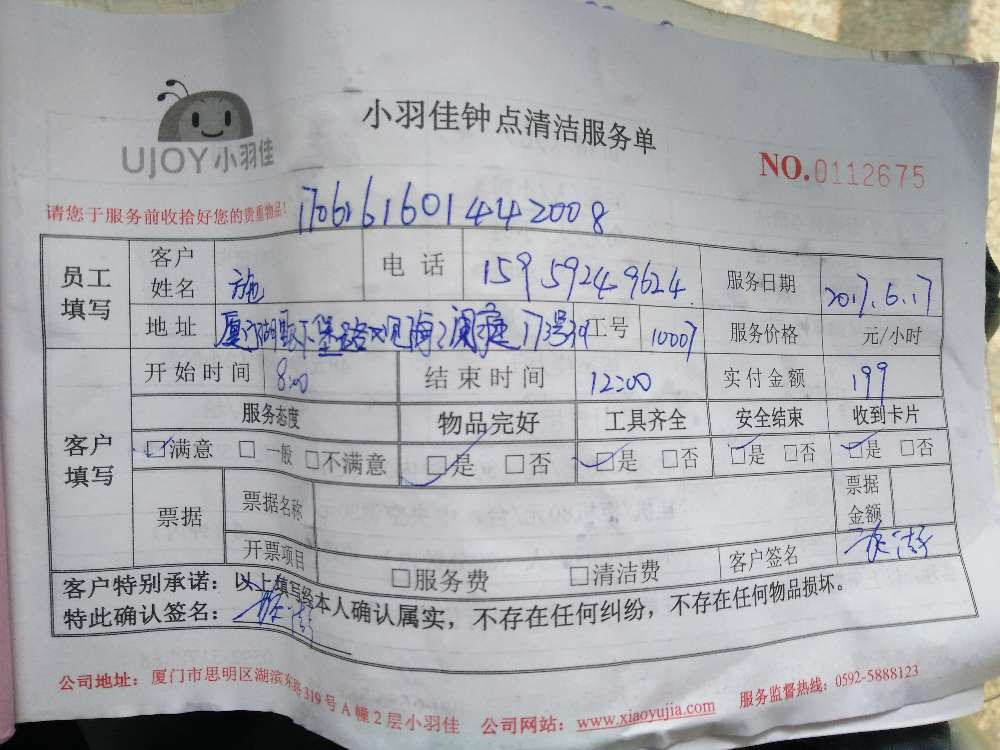 UJOY小羽佳
小羽佳钟点清洁服务单
NO.0112675
请您于服务前收拾好您的贵重物品!
1706161601442008
员工填写 客户姓名 施 电话 15959249624 服务日期 2017.6.17
地址 厦门湖 下堡 海 17号 工号 10007 服务价格 元/小时
开始时间 8:00 结束时间 12:00 实付金额 199
客户填写 服务态度 物品完好 工具齐全 安全结束 收到卡片
☑满意 □一般 □不满意 ☑是 □否 ☑是 □否 ☑是 □否 ☑是 □否
票据 票据名称 票据金额
开票项目 □服务费 □清洁费 客户签名
客户特别承诺:以上填写经本人确认属实,不存在任何纠纷,不存在任何物品损坏.
特此确认签名:
公司地址:厦门市思明区湖滨东路319号A幢2层小羽佳 公司网站:www.xiaoyujia.com 服务监督热线:0592-5888123